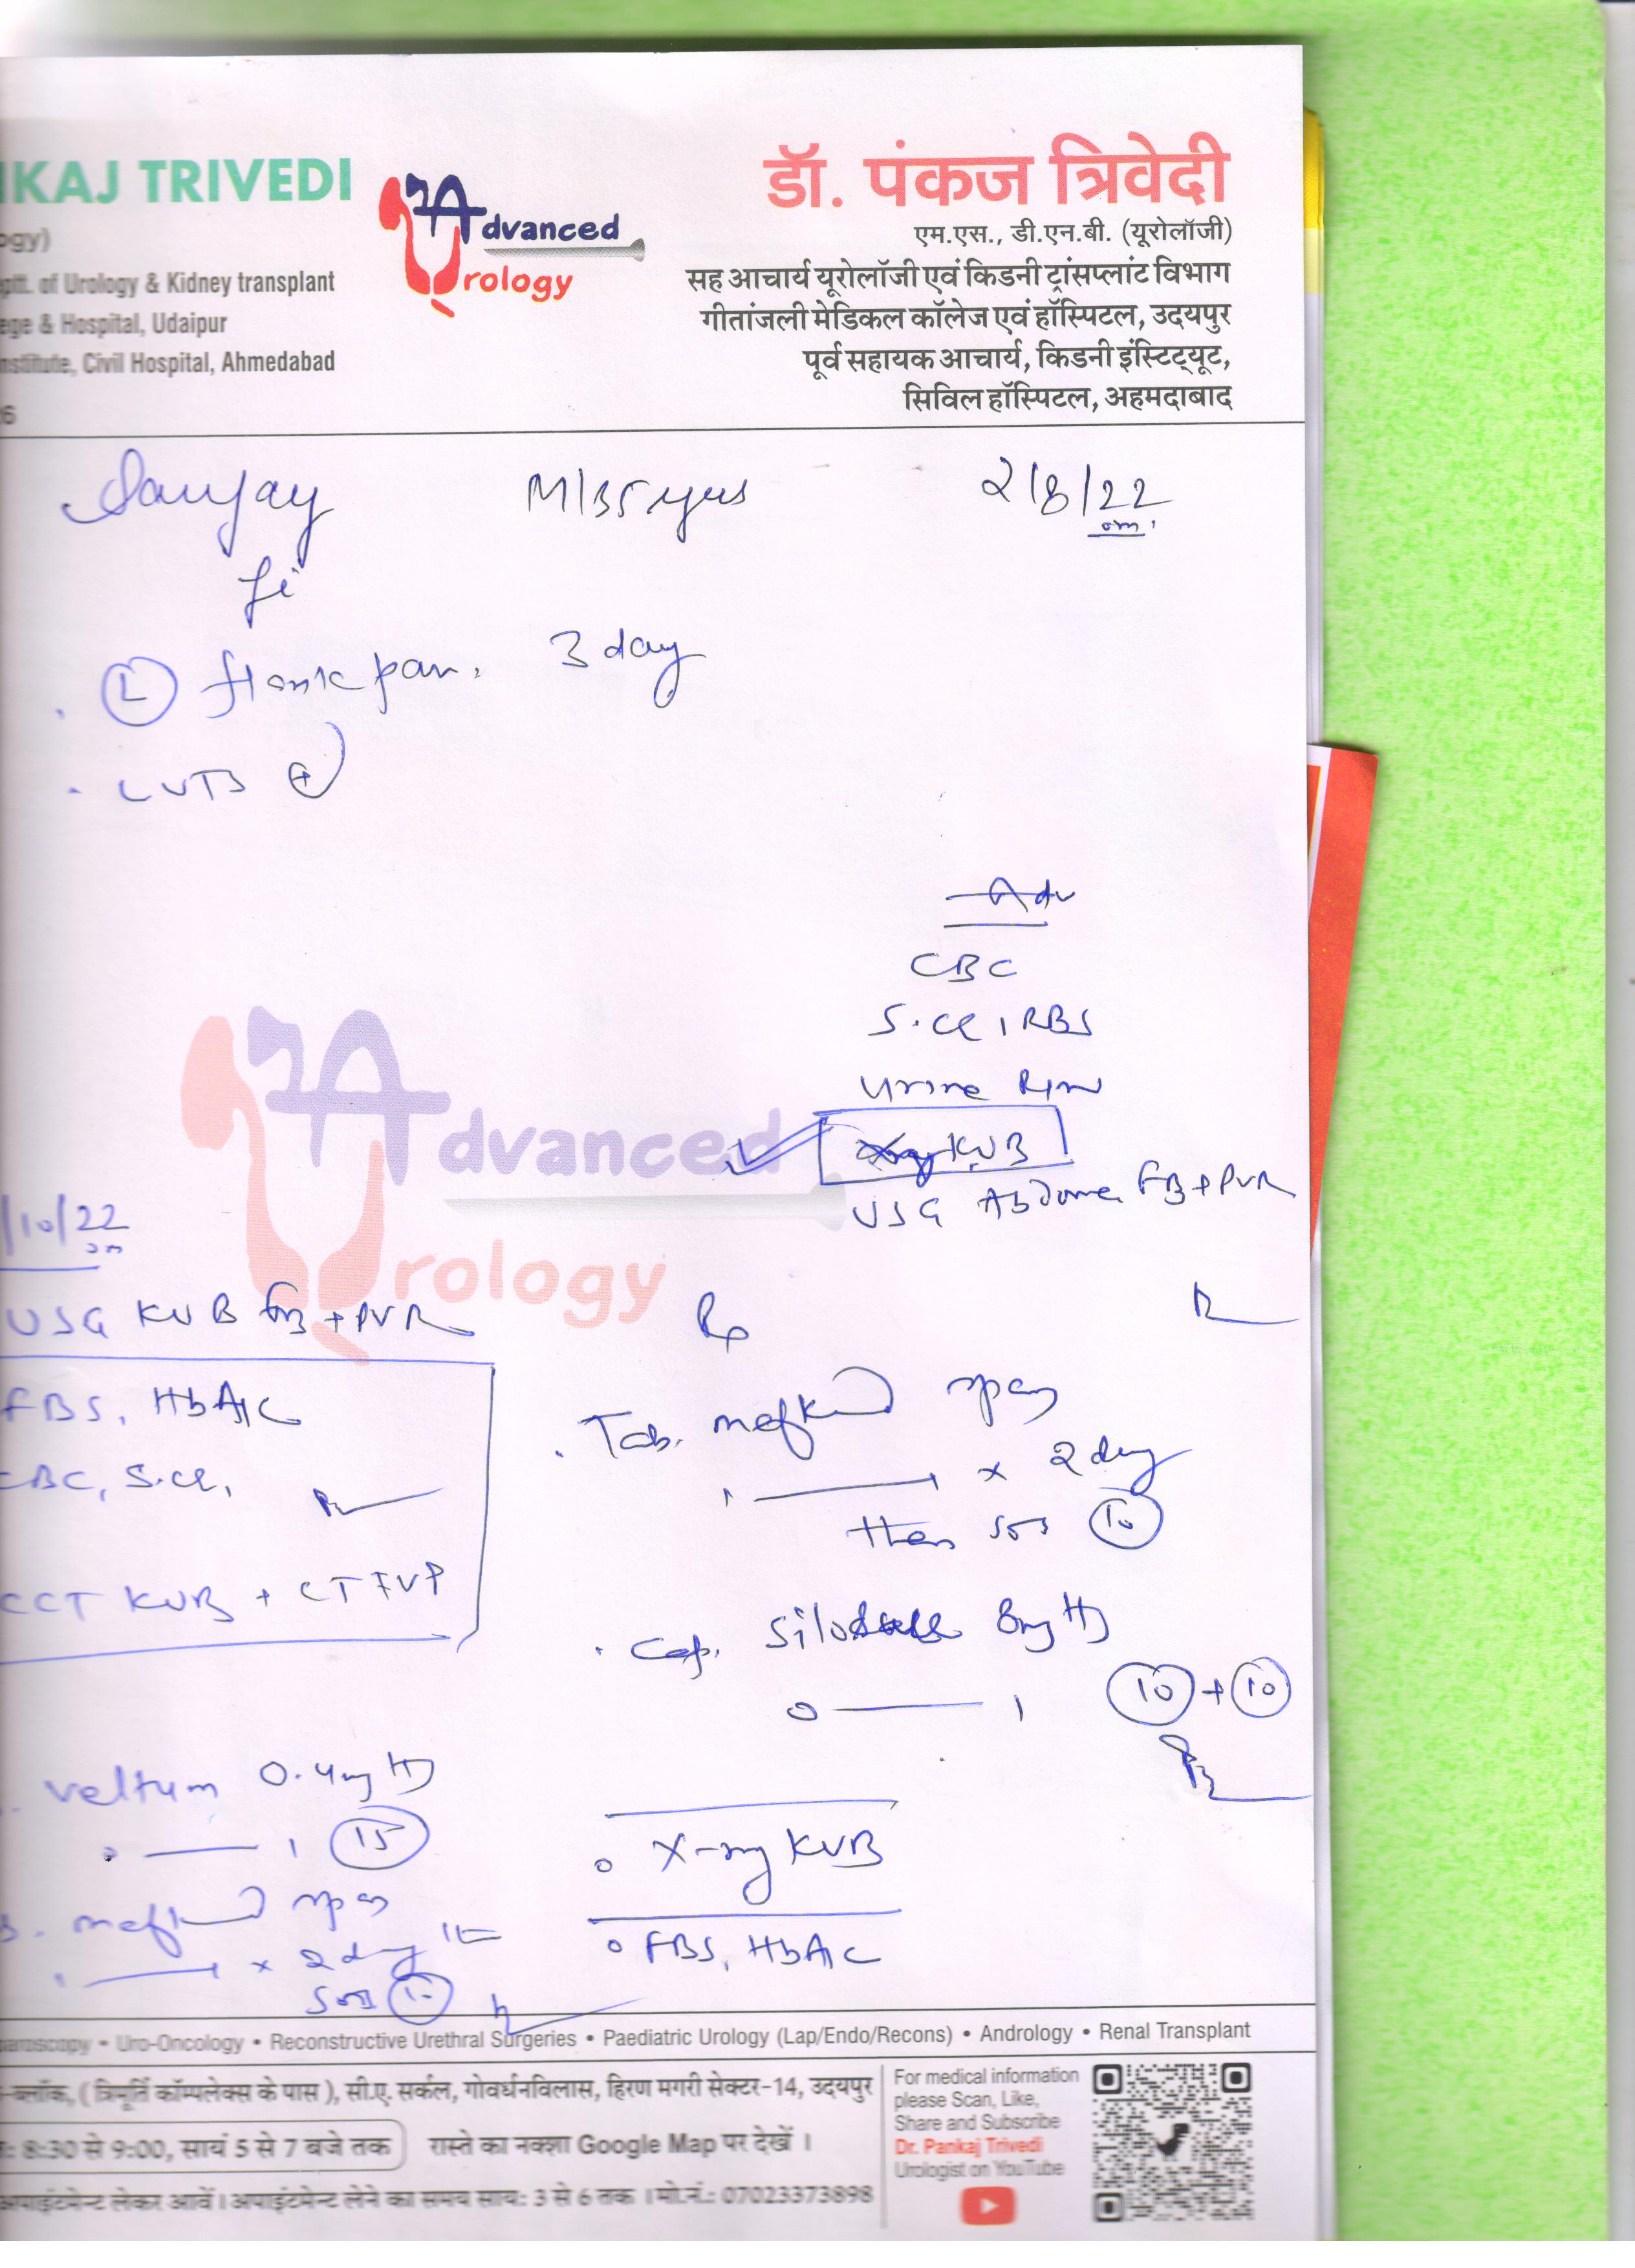 KAJ TRIVEDI
ogy)
ptt. of Urology & Kidney transplant
ege & Hospital, Udaipur
nstitute, Civil Hospital, Ahmedabad
6
Advanced
Urology
डॉ. पंकज त्रिवेदी
एम.एस., डी.एन.बी. (यूरोलॉजी)
सह आचार्य यूरोलॉजी एवं किडनी ट्रांसप्लांट विभाग
गीतांजली मेडिकल कॉलेज एवं हॉस्पिटल, उदयपुर
पूर्व सहायक आचार्य, किडनी इंस्टिट्यूट,
सिविल हॉस्पिटल, अहमदाबाद
Sanjay M/35 yrs 2/8/22
Ji
(L) flank pain. 3 day
LUTS (+)
Adv
CBC
S. Cr, RBS
Urine R/M
Xray KUB
USG Abdomen FB + PVR
Advanced
Urology
/10/22
USG KUB FB + PVR
FBS, HbA1C
CBC, S.Cr,
CCT KUB + CT IVP
Veltum 0.4mg HS
0 — 1 (15)
mefkind spas
1 — 1 x 2 day
SOS (10)
Rx
Tab. mefkind spas
1 — 1 x 2 day
then SOS (10)
Cap. 8mg HS
0 — 1 (10) + (10)
X-ray KUB
FBS, HbA1C
aroscopy • Uro-Oncology • Reconstructive Urethral Surgeries • Paediatric Urology (Lap/Endo/Recons) • Andrology • Renal Transplant
-ब्लॉक, ( त्रिमूर्ति कॉम्पलेक्स के पास ), सी.ए. सर्कल, गोवर्धनविलास, हिरण मगरी सेक्टर-14, उदयपुर
: 8:30 से 9:00, सायं 5 से 7 बजे तक रास्ते का नक्शा Google Map पर देखें ।
अपाइंटमेन्ट लेकर आवें । अपाइंटमेन्ट लेने का समय साय: 3 से 6 तक । मो.नं.: 07023373898
For medical information
please Scan, Like,
Share and Subscribe
Dr. Pankaj Trivedi
Urologist on YouTube